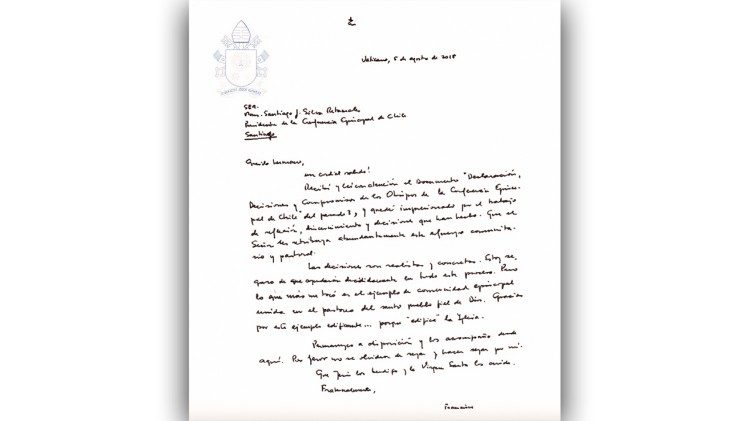 Vaticano, 5 de agosto de 2018
S.E.R.
Mons. Santiago J. Silva Retamales
Presidente de la Conferencia Episcopal de Chile
Santiago
Querido hermano,
un cordial saludo!
Recibí y leí con atención el Documento "Declaración,
Decisiones y Compromisos de los Obispos de la Conferencia Episco-
pal de Chile" del pasado 3, y quedé impresionado por el trabajo
de reflexión, discernimiento y decisiones que han hecho. Que el
Señor les retribuya abundantemente este esfuerzo comunita-
rio y pastoral.
Las decisiones son realistas y concretas. Estoy se-
guro de que ayudarán decididamente en todo este proceso. Pero
lo que más me tocó es el ejemplo de comunidad episcopal
unida en el pastoreo del santo pueblo fiel de Dios. Gracias
por este ejemplo edificante... porque "edifica" la Iglesia.
Permanezco a disposición y los acompaño desde
aquí. Por favor no se olviden de rezar y hacer rezar por mí.
Que Jesús los bendiga y la Virgen Santa los cuide.
Fraternalmente,
Francisco